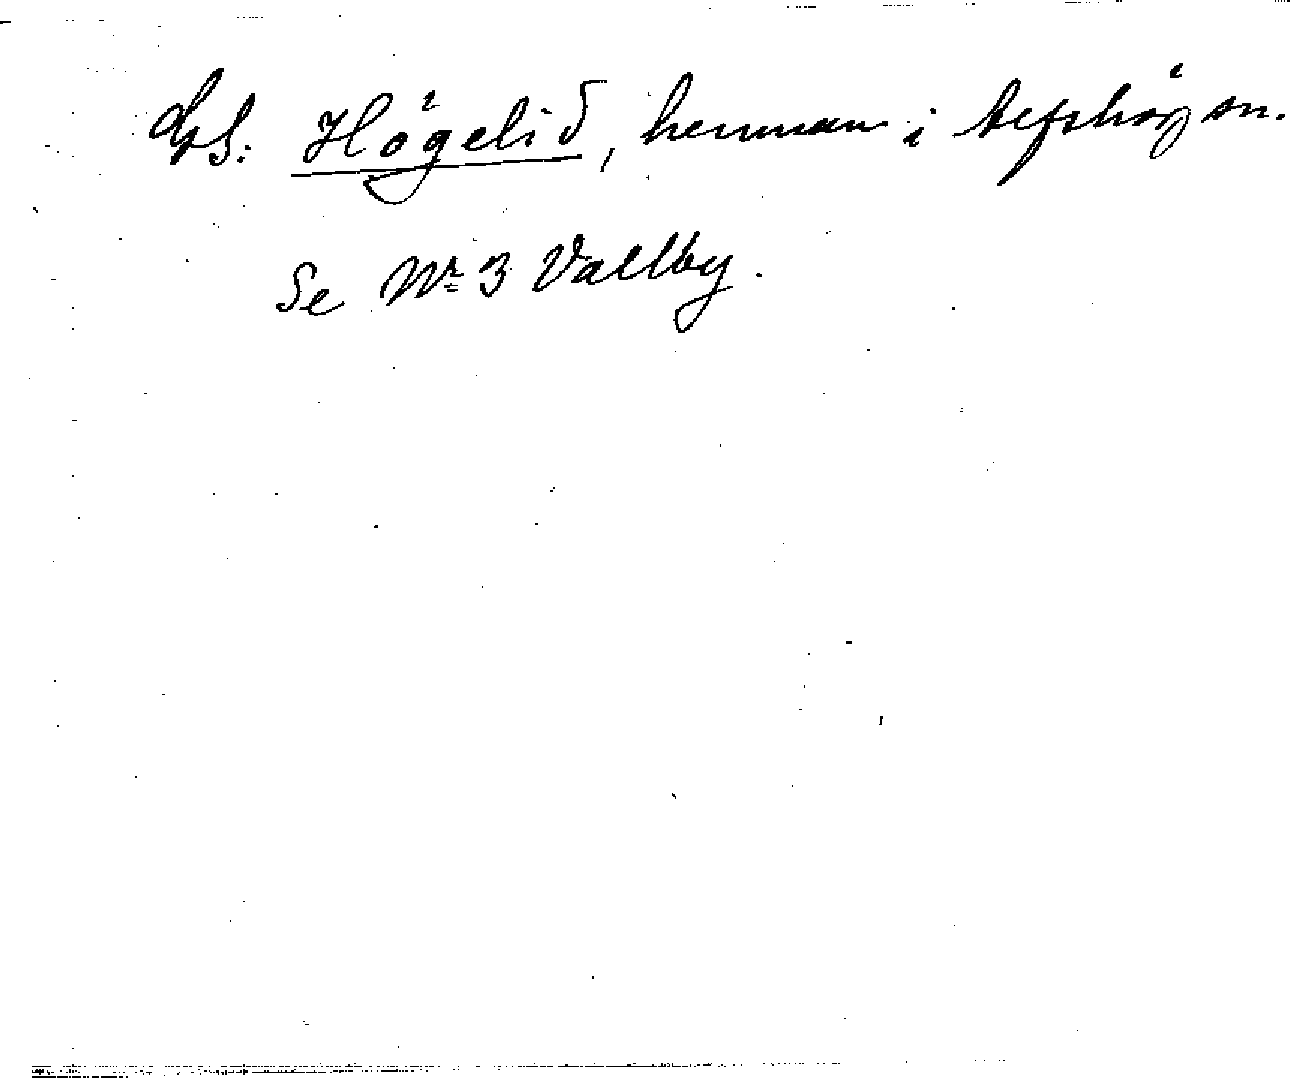 Ps. Högelid, hemman i Refshög sn.
Se Nr 3 Vallby.